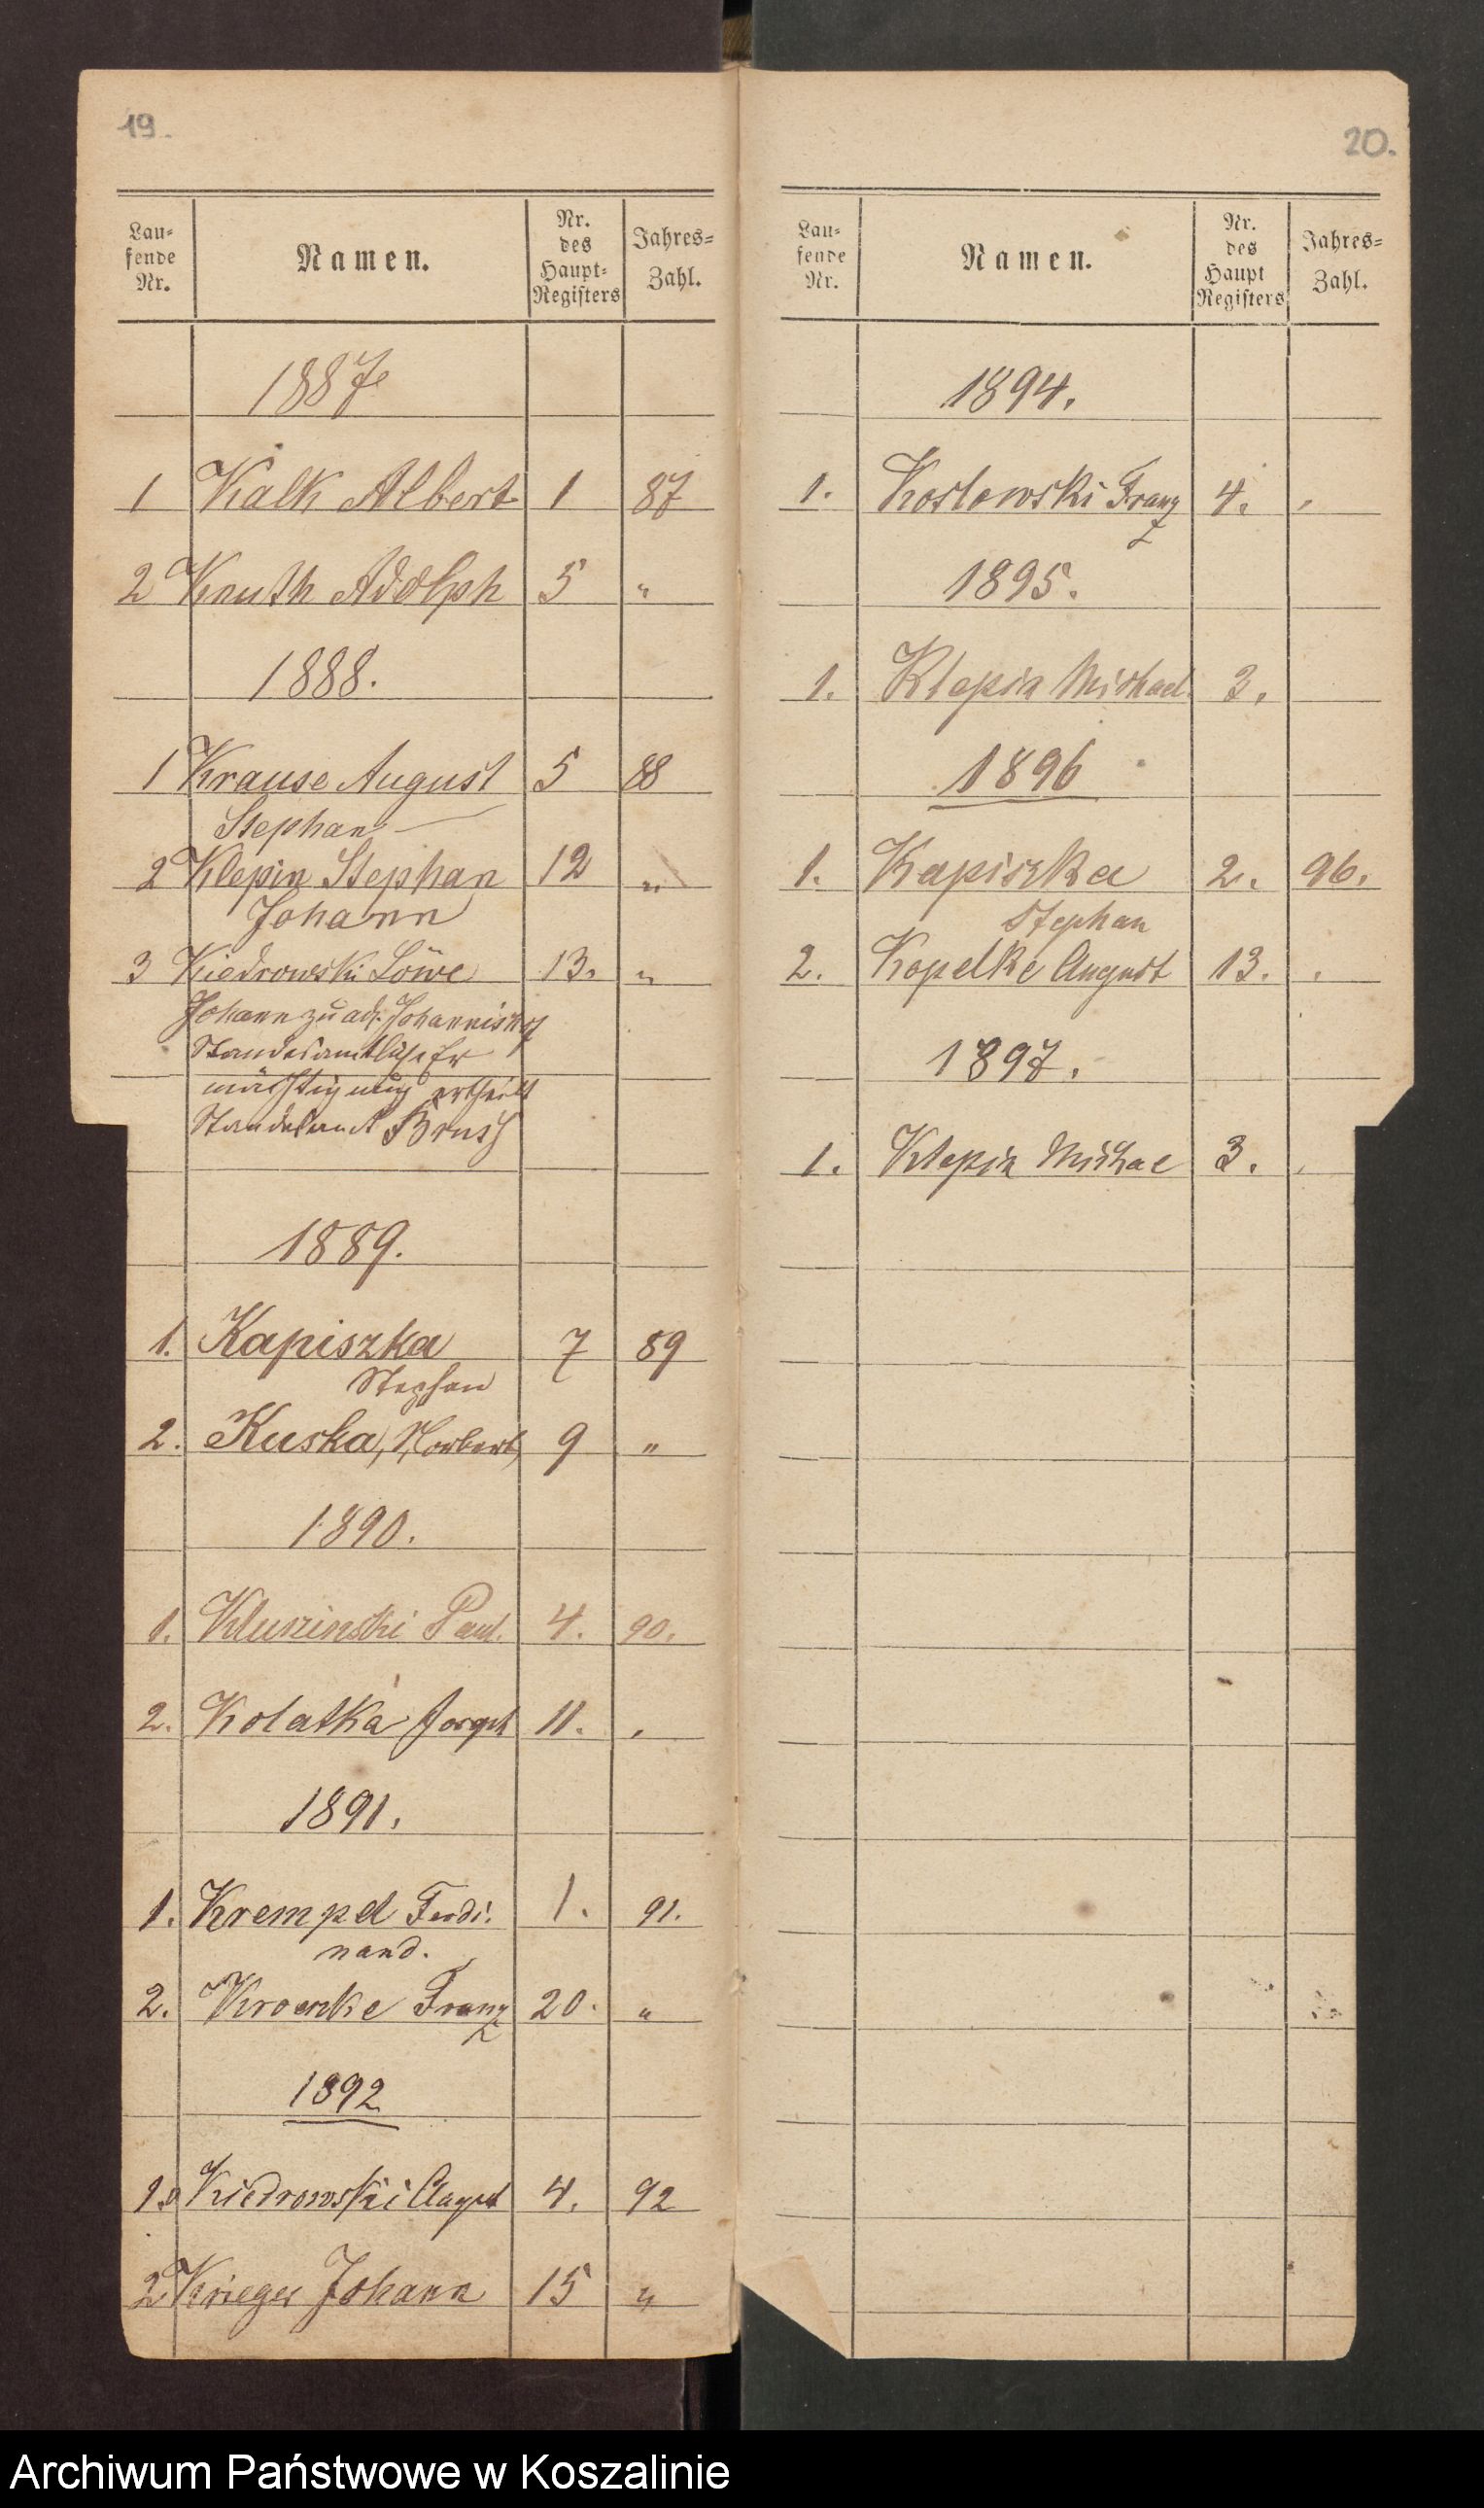 19.
Lau-
fende
Nr.
Namen.
Nr.
des
Haupt-
Registers
Jahres-
Zahl.
1887
1 Kalk Albert 1 87
2 Knuth Adolph 5 "
1888.
1 Krause August 5 88
Stephan
2 Klepin Stephan 12 "
Johann
3 Kiedrowski Löwe 13. "
Johann zu adl.
Standesamtliche Er
mächtigung ertheilt
Standesamt
1889.
1. Kapiszka 7 89
Stephan
2. Kuska, Norbert, 9 "
1890.
1. Paul. 4. 90.
2. Kolatka Joseph 11. "
1891.
1. Krempel Ferdi- 1. 91.
nand.
2. Kroenke Franz 20. "
1892
1. Kiedrowski August 4. 92
2 Krieger Johann 15 "
20.
Lau-
fende
Nr.
Namen.
Nr.
des
Haupt
Registers
Jahres-
Zahl.
1894.
1. Koslowski Franz 4. "
1895.
1. Klepin Michael 3.
1896
1. Kapiszka 2. 96.
Stephan
2. Kopelke August 13. "
1897.
1. Klepin Michae 3. "
Archiwum Państwowe w Koszalinie